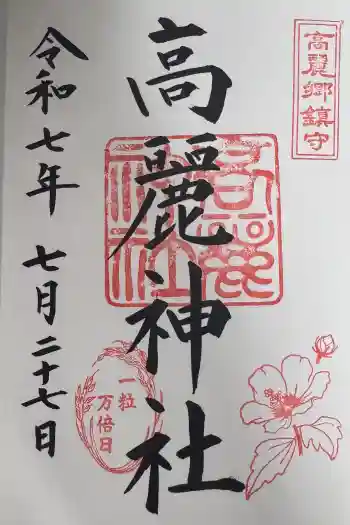 高麗郷鎮守
高麗神社
高麗神社
令和七年 七月二十七日
一粒
万倍日